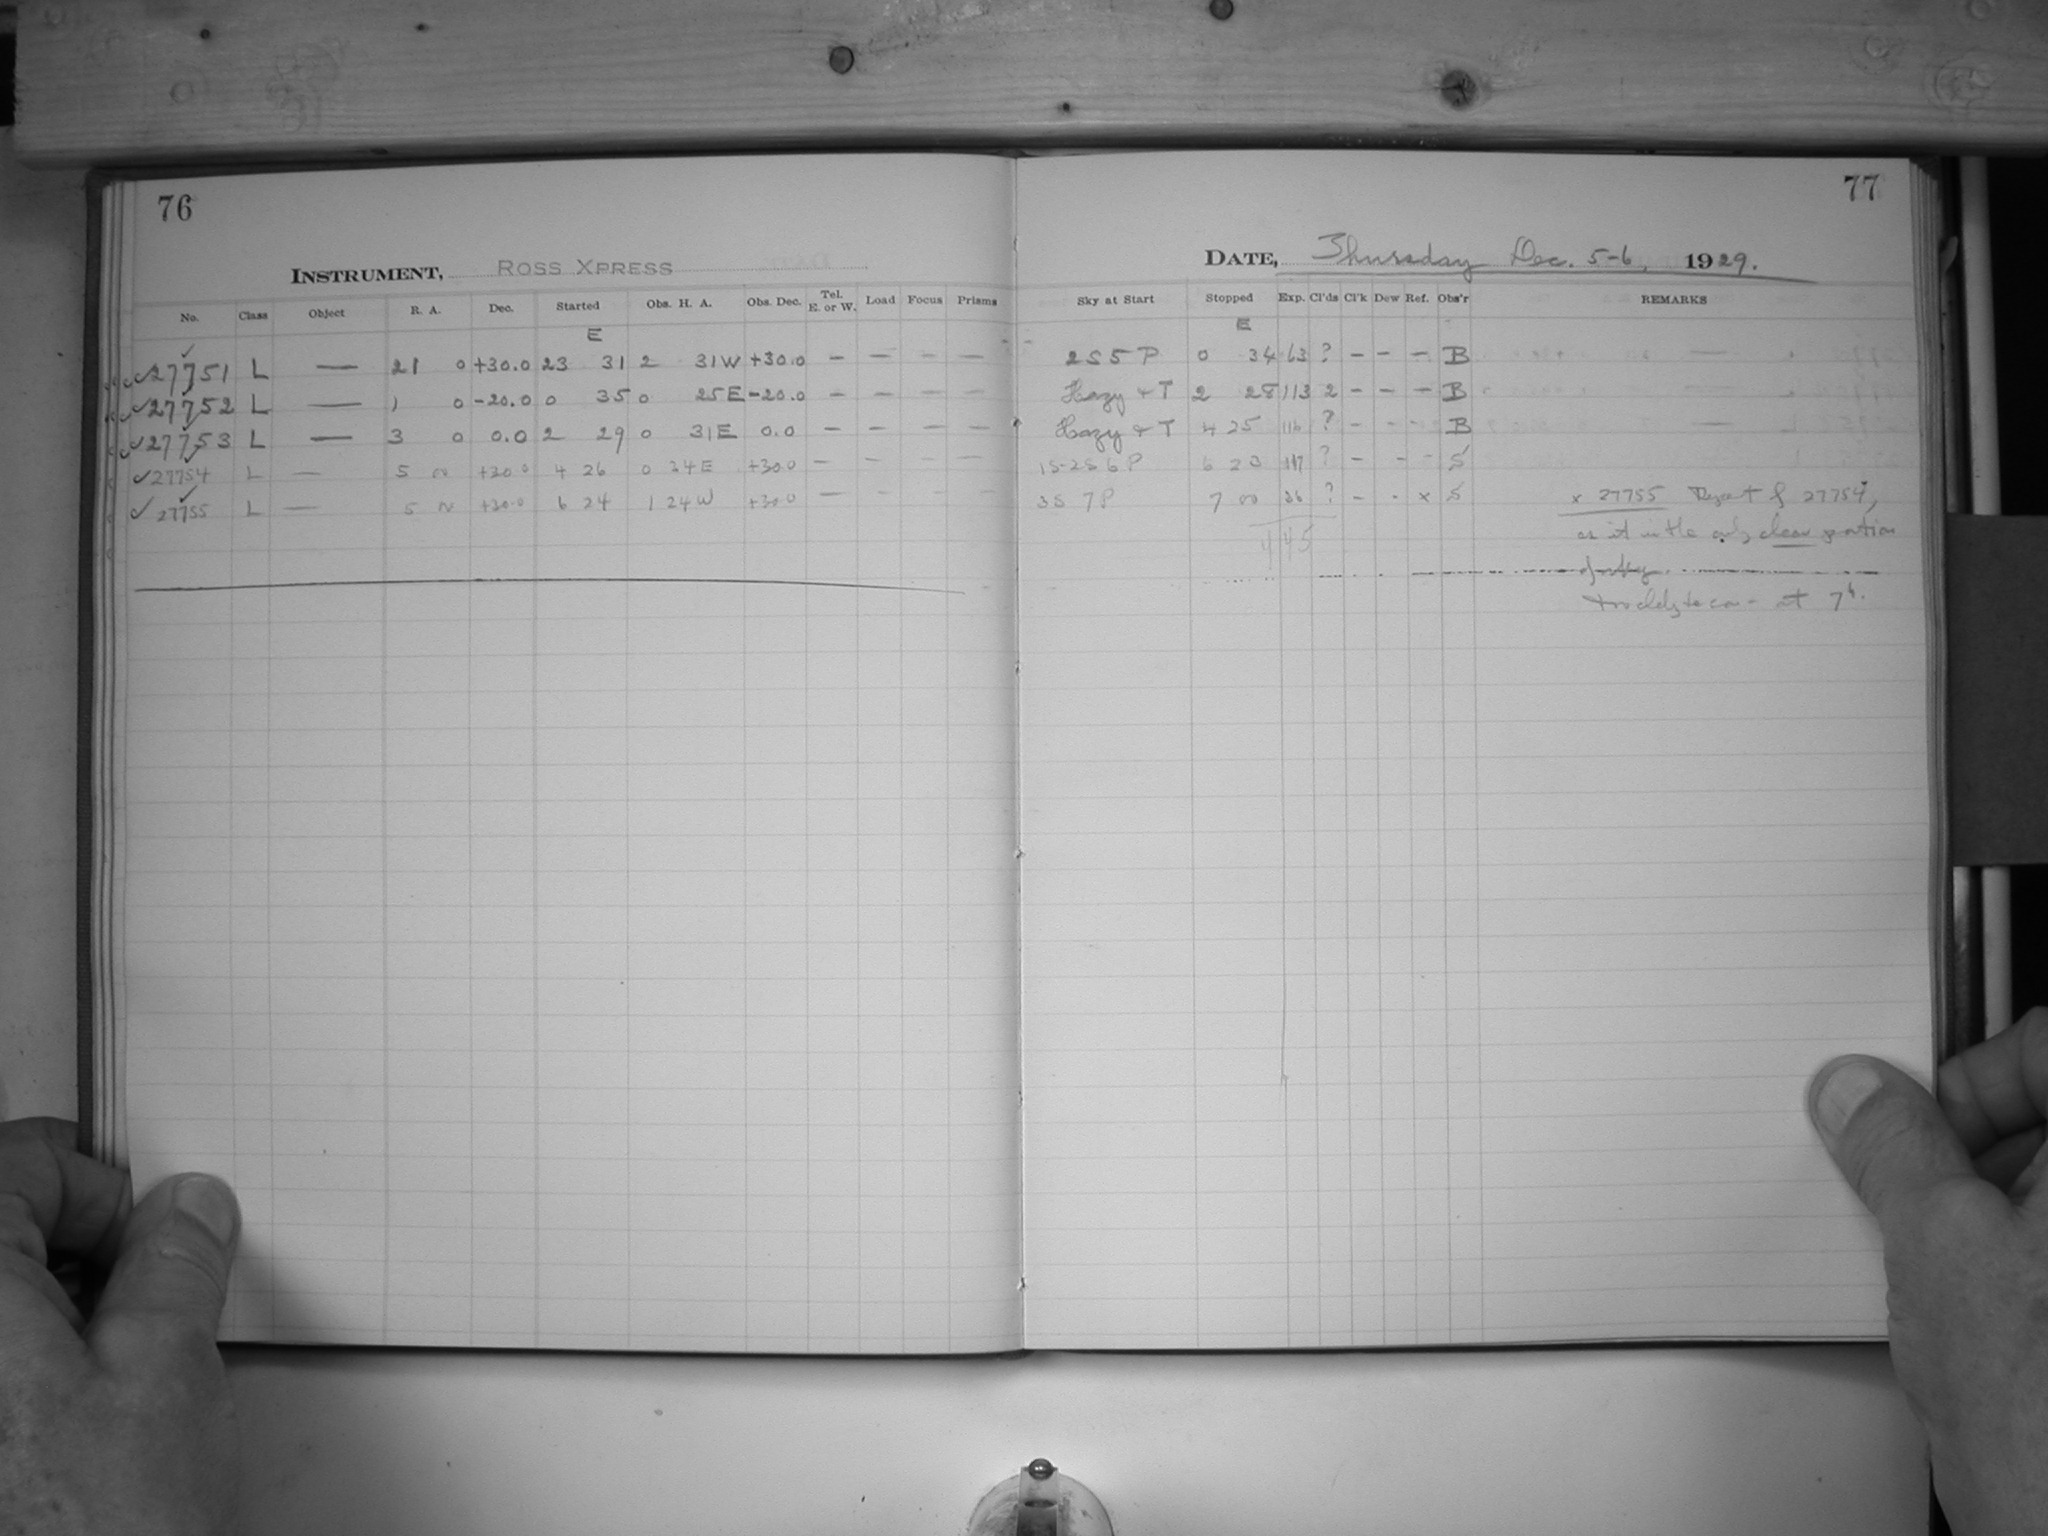 76
77
INSTRUMENT, ROSS XPRESS
DATE, Thursday Dec. 5-6, 1929.
No. Class Object R. A. Dec. Started Obs. H. A. Obs. Dec. Tel. E. or W. Load Focus Prisms Sky at Start Stopped Exp. Cl'ds Cl'k Dew Ref. Obs'r REMARKS
E E
✓27751 L — 21 0 +30.0 23 31 2 31W +30.0 — — — — 2S 5 P 0 34 63 ? — — — B
✓27752 L — 1 0 -20.0 0 35 0 25E -20.0 — — — — Hazy + T 2 28 113 2 — — — B
✓27753 L — 3 0 0.0 2 29 0 31E 0.0 — — — — Hazy + T 4 25 116 ? — — — B
✓27754 L — 5 +30.0 4 26 0 34E +30.0 — — — — 1S-2S 6 P 6 23 117 ? — — — S
✓27755 L — 5 +30.0 6 24 1 24W +30.0 — — — — 3S 7P 7 00 36 ? — - x S x 27755 Repeat of 27754,
445 as it in the only clear portion
of sky.
at 7h.